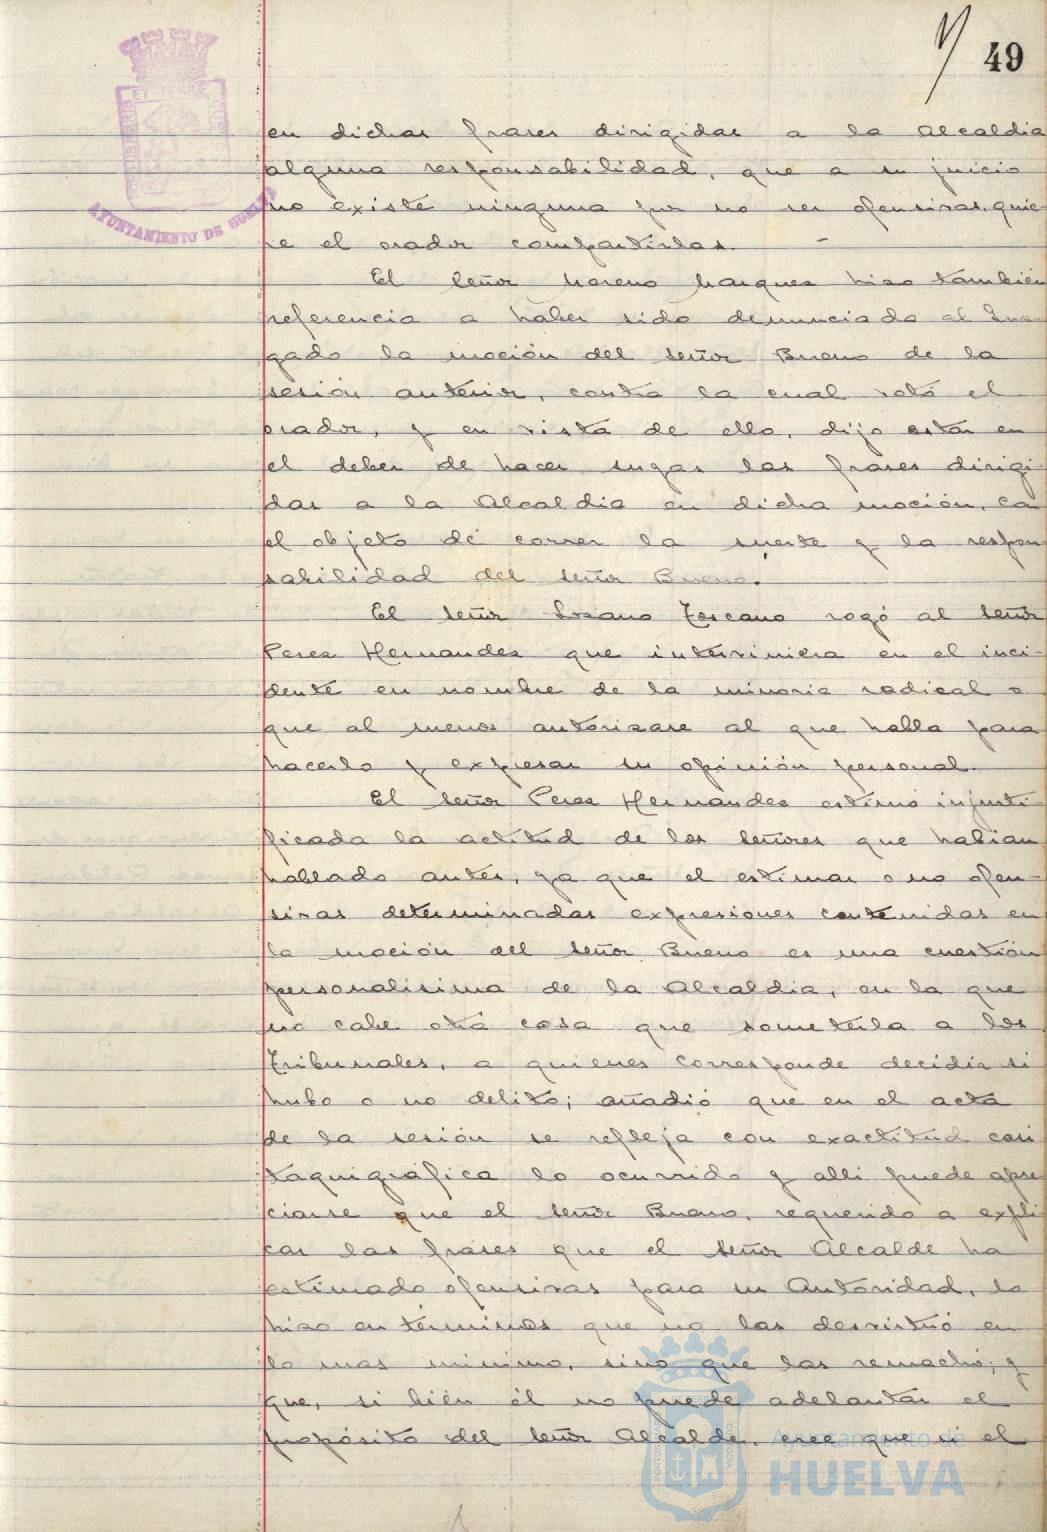 49
en dichas frases dirigidas a la alcaldia
alguna responsabilidad, que a su juicio
no existe ninguna por no ser ofensivas, quie-
re el orador compartirlas. —
El señor Moreno Marquez hizo también
referencia a haber sido denunciado al Juz-
gado la moción del señor Bueno de la
sesión anterior, contra la cual votó el
orador, y en vista de ello, dijo estar en
el deber de hacer suyas las frases dirigi
das a la Alcaldia en dicha moción, con
el objeto de correr la suerte y la respon
sabilidad del señor Bueno.
El señor Lozano Toscano rogó al señor
Perez Hernandez que interviniera en el inci-
dente en nombre de la minoria radical o
que al menos autorizare al que habla para
hacerlo y expresar su opinión personal.
El señor Perez Hernandez estimó injusti-
ficada la actitud de los señores que habian
hablado antes, ya que el estimar o no ofen-
sivas determinadas expresiones contenidas en
la moción del señor Bueno es una cuestión
personalisima de la Alcaldia, en la que
no cabe otra cosa que someterla a los
Tribunales, a quienes corresponde decidir si
hubo o no delito; añadió que en el acta
de la sesión se refleja con exactitud casi
taquigráfica lo ocurrido y alli puede apre
ciarse que el señor Bueno, requerido a expli
car las frases que el señor Alcalde ha
estimado ofensivas para su Autoridad, lo
hizo en términos que no las desvirtuó en
lo mas minimo, sino que las remachó; y
que, si bién él no puede adelantar el
propósito del señor Alcalde, cree que si el
AYUNTAMIENTO DE HUELVA
Ayuntamiento de
HUELVA